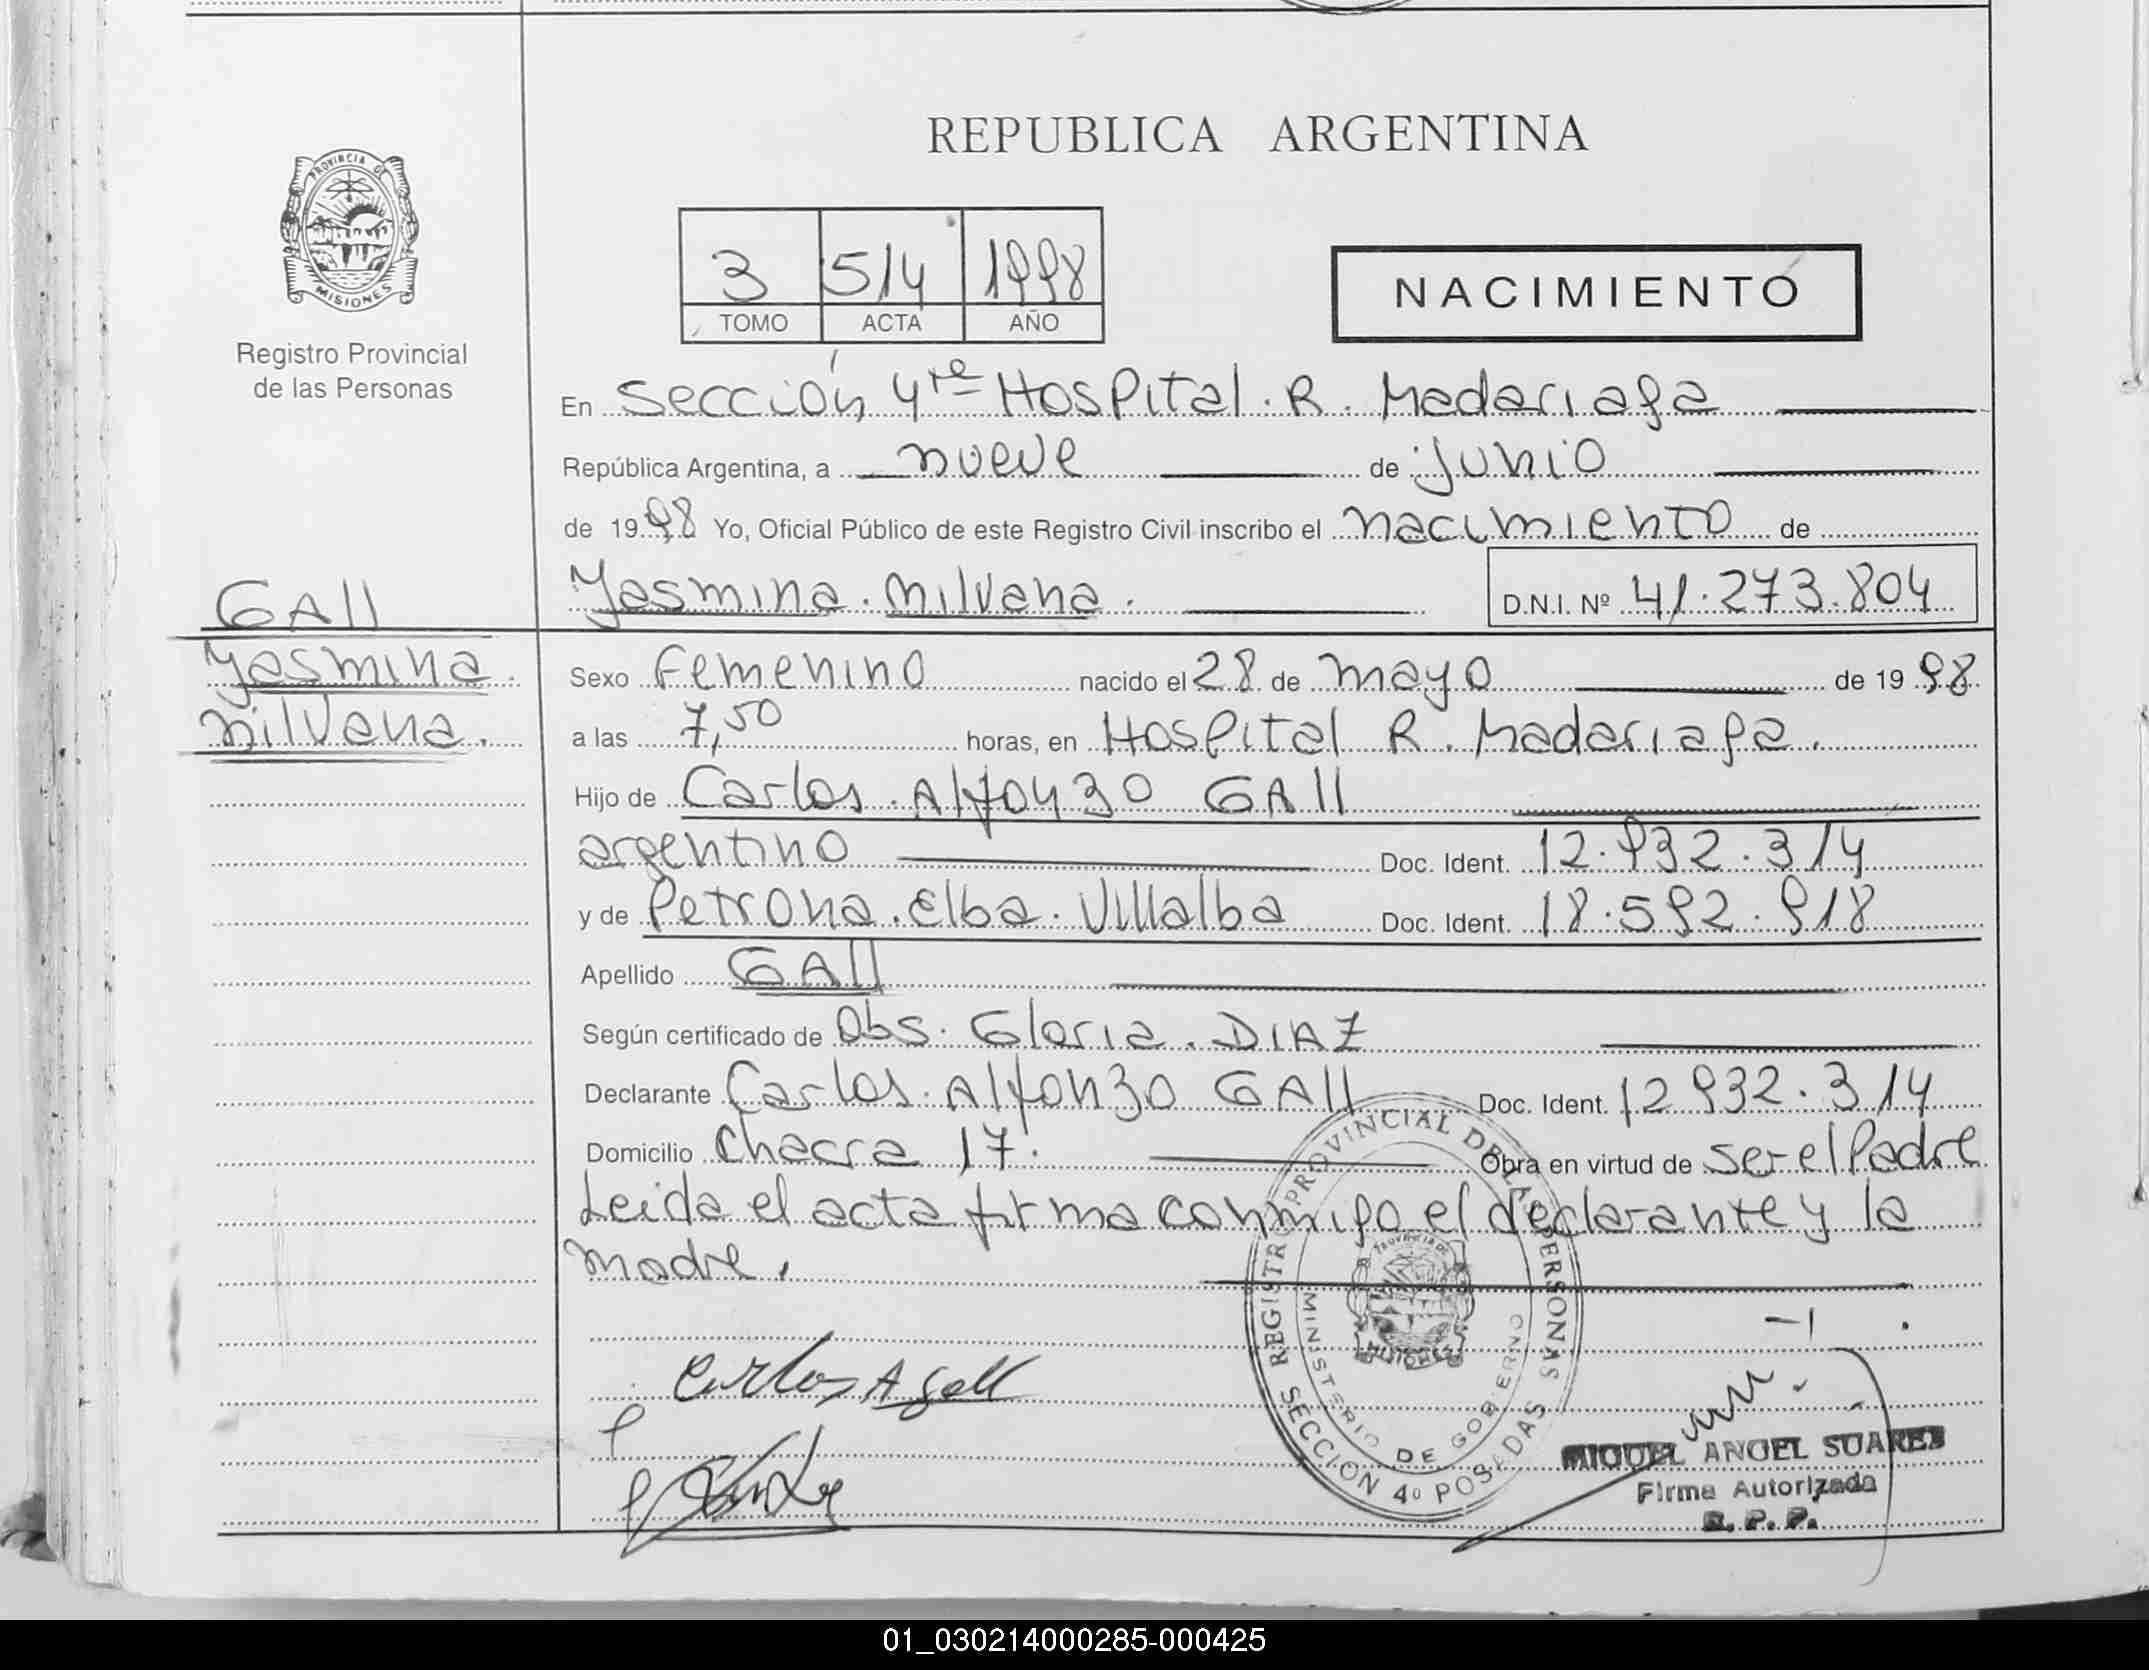 PROVINCIA DE
MISIONES
Registro Provincial
de las Personas
REPUBLICA ARGENTINA
3 514 1998
TOMO ACTA AÑO
NACIMIENTO
En Sección 4ta Hospital. R. Madariaga
República Argentina, a nueve de junio
de 1998 Yo, Oficial Público de este Registro Civil inscribo el nacimiento de
GAll Yasmina. Milvana. D.N.I. Nº 41.273.804
Yasmina. Sexo Femenino nacido el 28 de mayo de 1998
Milvana. a las 7,50 horas, en Hospital R. Madariaga.
Hijo de Carlos. Alfonzo GAll
argentino Doc. Ident. 12.932.314
y de Petrona. Elba. Villalba Doc. Ident. 18.592.918
Apellido GAll
Según certificado de Obs. Gloria. DIAZ
Declarante Carlos. Alfonzo GAll Doc. Ident. 12932.314
Domicilio Chacra 17. Obra en virtud de ser el Padre
Leida el acta firma conmigo el declarante y la
madre.
REGISTRO PROVINCIAL DE LAS PERSONAS
SECCION 4º POSADAS
MINISTERIO DE GOBIERNO
PROVINCIA DE
MISIONES
Carlos A Gall
MIGUEL ANGEL SUAREZ
Firma Autorizada
R. P. P.
01_030214000285-000425